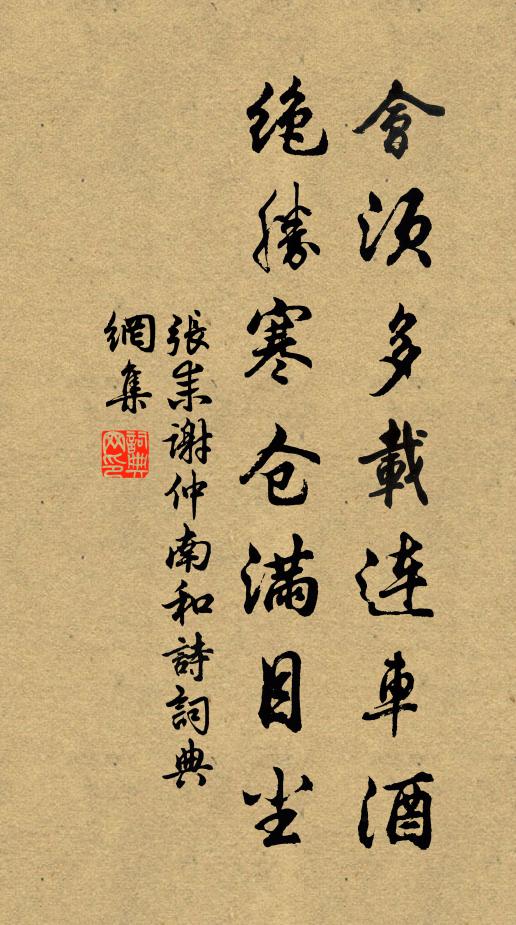 會須多載連車酒
絶勝寒仓満目尘
張耒謝仲南和詩詞典
網集
詞典
网印